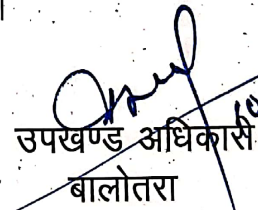 उपखण्ड अधिकारी
बालोतरा